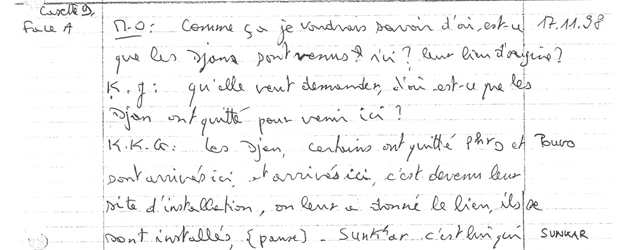 Cassette 9. M.O: Comme ça je voudrais savoir d'où est-ce 17.11.98
Face A que les Djans sont venus ici? leur lieu d'origine?
K.J: qu'elle veut demander, d'où est-ce que les
Djan ont quitté pour venir ici?
K.K.G: Les Djan, certains ont quitté et
sont arrivés ici, et arrivés ici, c'est devenu leur
site d'installation, on leur a donné le lieu, ils se
sont installés, (pause) - Sunkar c'est lui qui SUNKAR